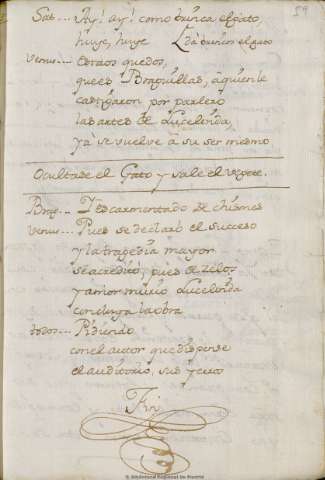 59
Sat... Ay! ay! como brinca el gato,
huye, huye [da brincos el gato
Venus... Estaos quedos,
que es Braguillas, à quien le
castigaron por parlero
las artes de Lucelinda,
y à se vuelve à su ser mesmo
Ocultase el Gato y sale el vejete.
Brag... Y escarmentado de chismes
Venus... Pues se declaró el suceso
y la tragedia mayor
se acreditó, pues de zelos
y amor murió Lucelinda
concluya la obra
todos... Pidiendo
con el autor que dispense
el auditorio, sus yerros
Fin
© Biblioteca Regional de Madrid